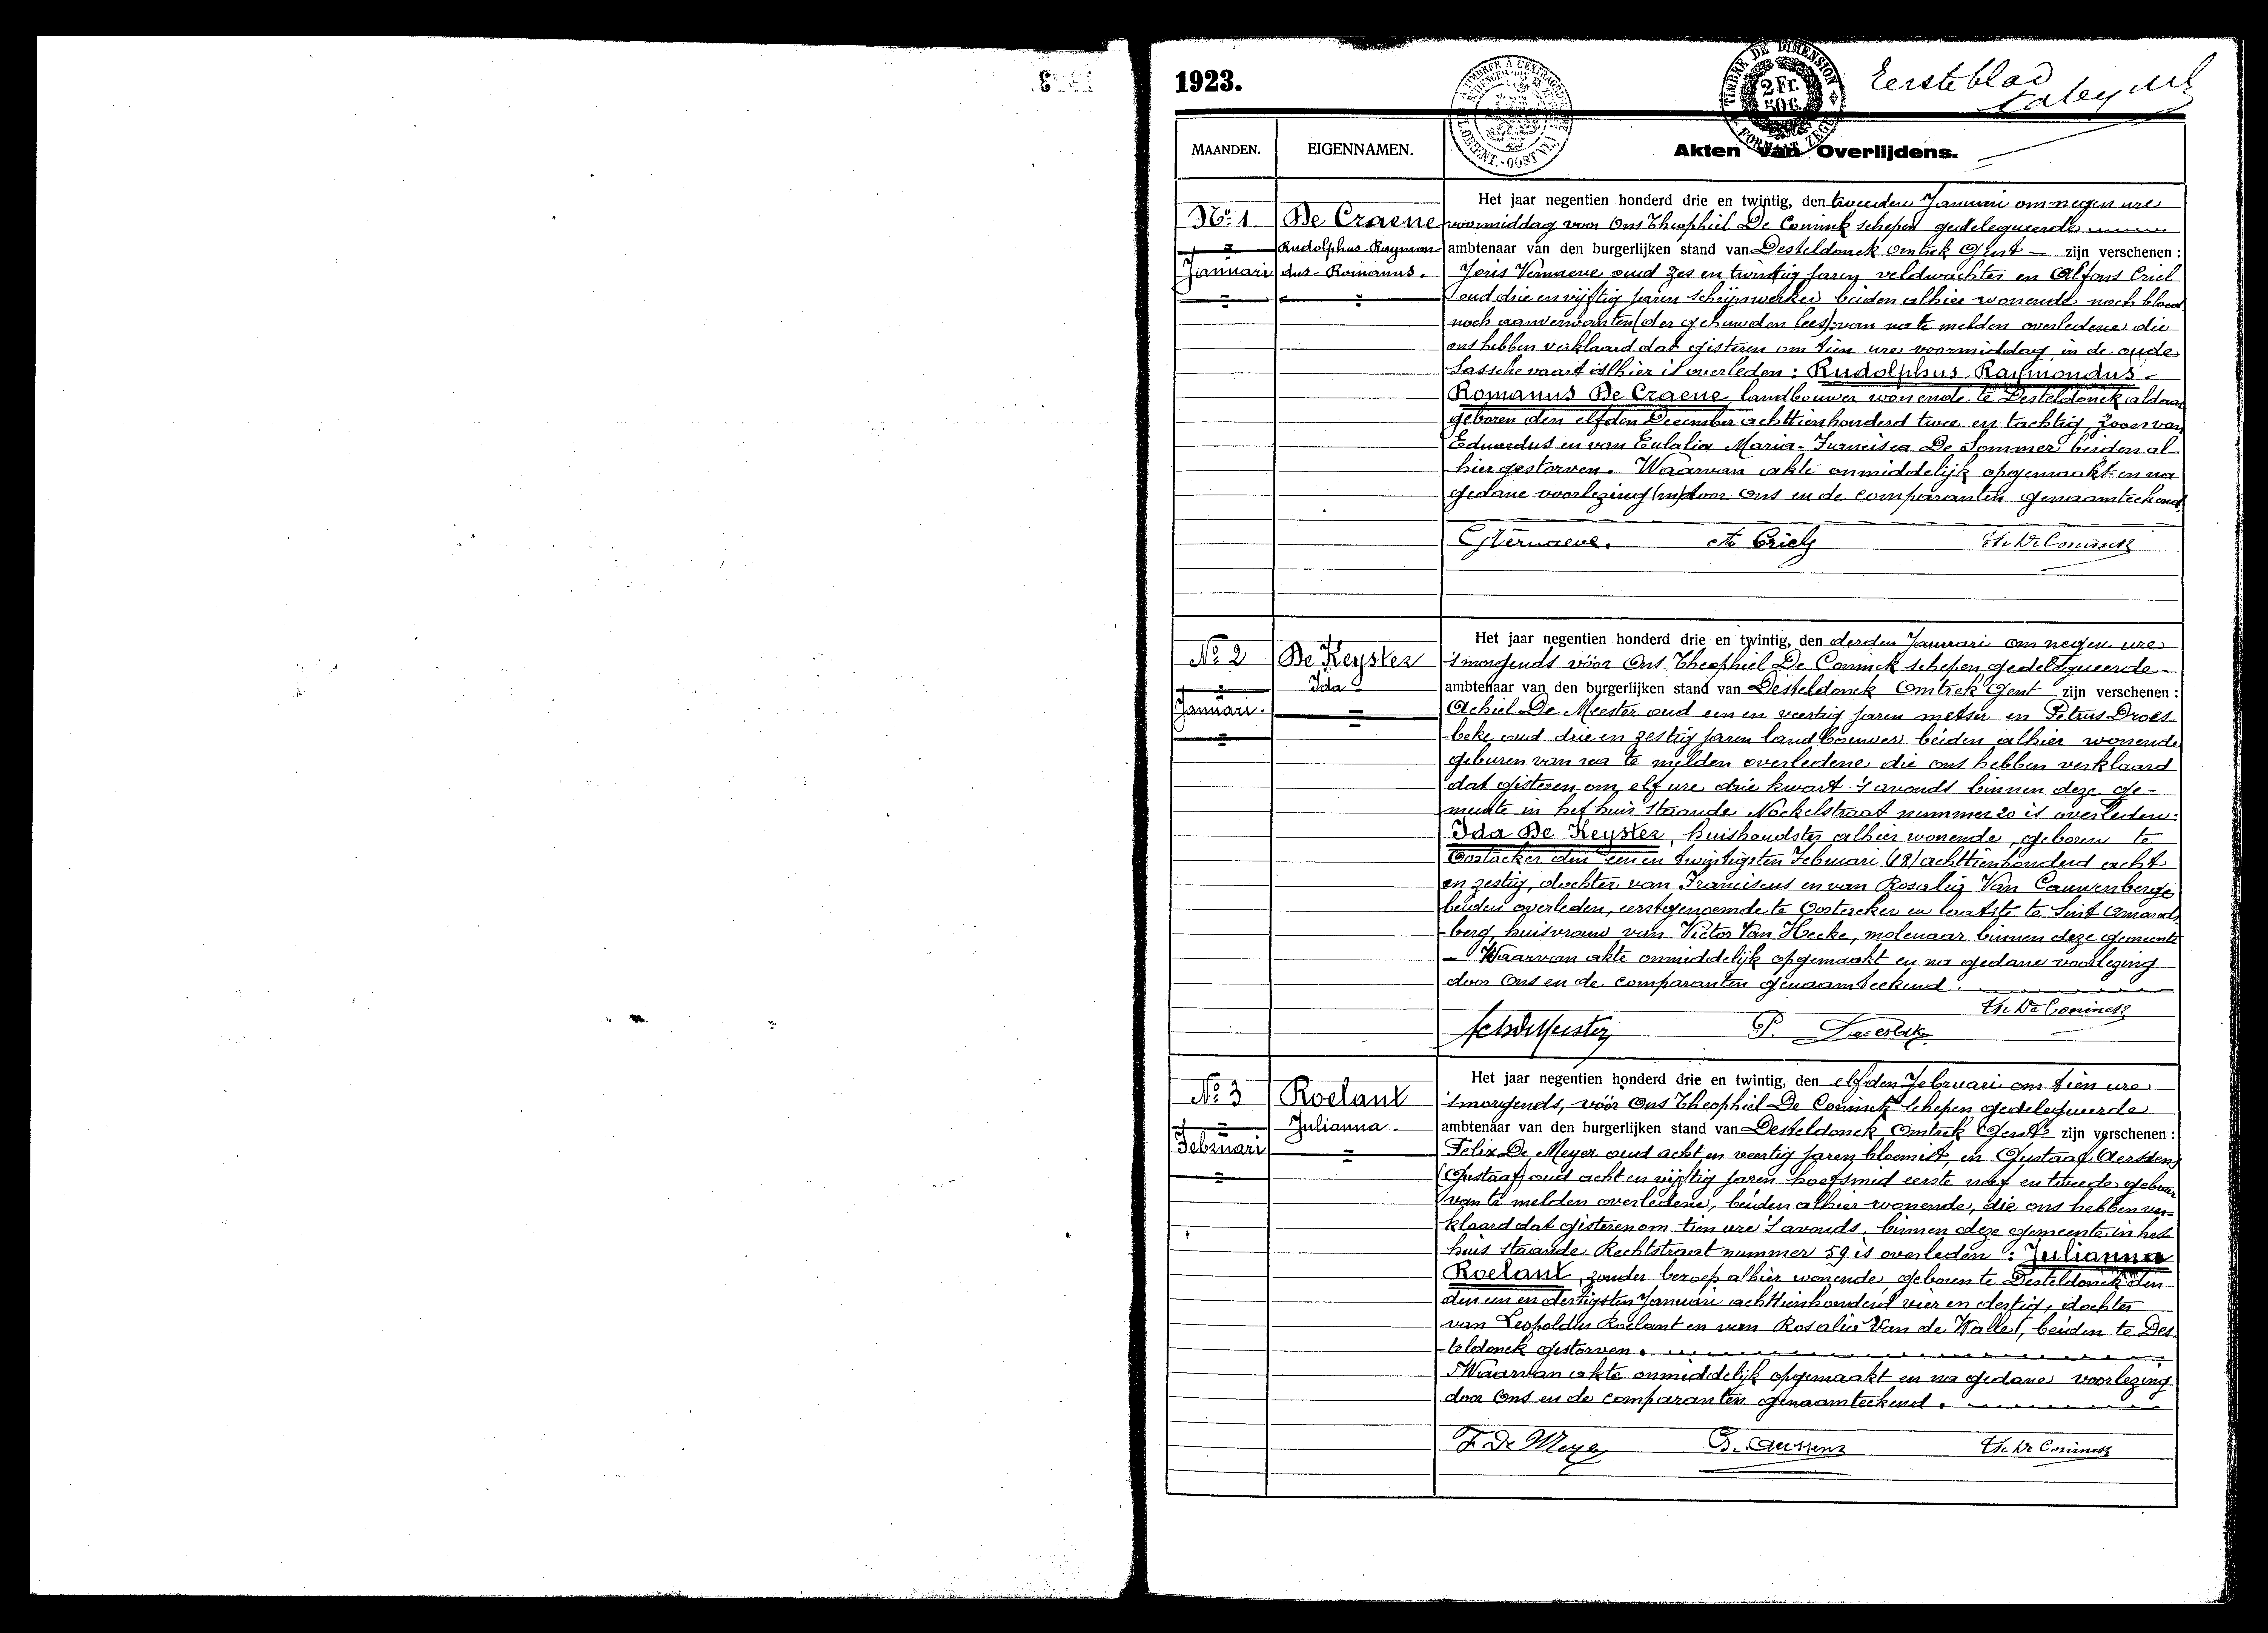 1923.
Eerste blad
TIMBRE DE DIMENSION
2 Fr. 50 C.
MAANDEN.
EIGENNAMEN.
Akten van Overlijdens.
No. 1
Januari
De Craene
Rudolphus Raymon-
dus-Romanus.
Het jaar negentien honderd drie en twintig, den tweeden Januari om negen ure
voormiddag voor Ons Theophiel De Coninck schepen gedelegueerde
ambtenaar van den burgerlijken stand van Desteldonck Omtrek Gent — zijn verschenen :
Joris Vernaeve oud zes en twintig jaren veldwachter en Alfons Criel
oud drie en vijftig jaren schrijnwerker beiden alhier wonende noch bloed
noch aanverwanten (der gehuwden lees): van na te melden overledene die
ons hebben verklaard dat gisteren om tien ure voormiddag in de oude
Sassche vaart alhier is overleden : Rudolphus Raymondus-
Romanus De Craene landbouwer wonende te Desteldonck aldaar
geboren den elfden December achttienhonderd twee en tachtig, zoon van
Eduardus en van Eulalia Maria-Francisca De Sommer beiden al
hier gestorven. Waarvan akte onmiddelijk opgemaakt en na
gedane voorlezing door Ons en de comparanten genaamteekend.
G Vernaeve. A Criel Th. De Coninck
No. 2
Januari.
De Keyster
Ida
Het jaar negentien honderd drie en twintig, den derden Januari om negen ure
'smorgends vóór Ons Theophiel De Coninck schepen gedelegueerde
ambtenaar van den burgerlijken stand van Desteldonck Omtrek Gent zijn verschenen :
Achiel De Meester oud een en veertig jaren metser en Petrus Droes-
beke oud drie en zestig jaren landbouwer beiden alhier wonende
geburen van na te melden overledene die ons hebben verklaard
dat gisteren om elf ure drie kwart 's avonds binnen deze ge-
meente in het huis staande Nockelstraat nummer 20 is overleden:
Ida De Keyster, huishoudster alhier wonende, geboren te
Oostacker den een en twintigsten Februari (18) achttienhonderd acht
en zestig, dochter van Franciscus en van Rosalia Van Cauwenberge
beiden overleden, eerstgenoemde te Oostacker en laatste te Sint Amands
berg, huisvrouw van Victor Van Hecke, molenaar binnen deze gemeente
- Waarvan akte onmiddelijk opgemaakt en na gedane voorlezing
door Ons en de comparanten genaamteekend.
Th. De Coninck
Ach De Meester P. Droesbeke
No. 3
Februari
Roelant
Julianna
Het jaar negentien honderd drie en twintig, den elfden Februari om tien ure
'smorgends, vóór Ons Theophiel De Coninck schepen gedelegueerde
ambtenaar van den burgerlijken stand van Desteldonck Omtrek Gent zijn verschenen :
Felix De Meyer oud acht en veertig jaren bloemist, en Gustaaf Aerssens
(Gustaaf) oud acht en vijftig jaren hoefsmid eerste neef en tweede gebuur
van te melden overledene, beiden alhier wonende, die ons hebben ver-
klaard dat gisteren om tien ure 's avonds, binnen deze gemeente in het
huis staande Rechtstraat nummer 59 is overleden : Julianna
Roelant, zonder beroep alhier wonende, geboren te Desteldonck den
den een en dertigsten Januari achttienhonderd vier en dertig, dochter
van Leopoldus Roelant en van Rosalia Van de Walle, beiden te Des-
teldonck gestorven.
Waarvan akte onmiddelijk opgemaakt en na gedane voorlezing
door Ons en de comparanten genaamteekend.
F. De Meyer G. Aerssens Th. De Coninck